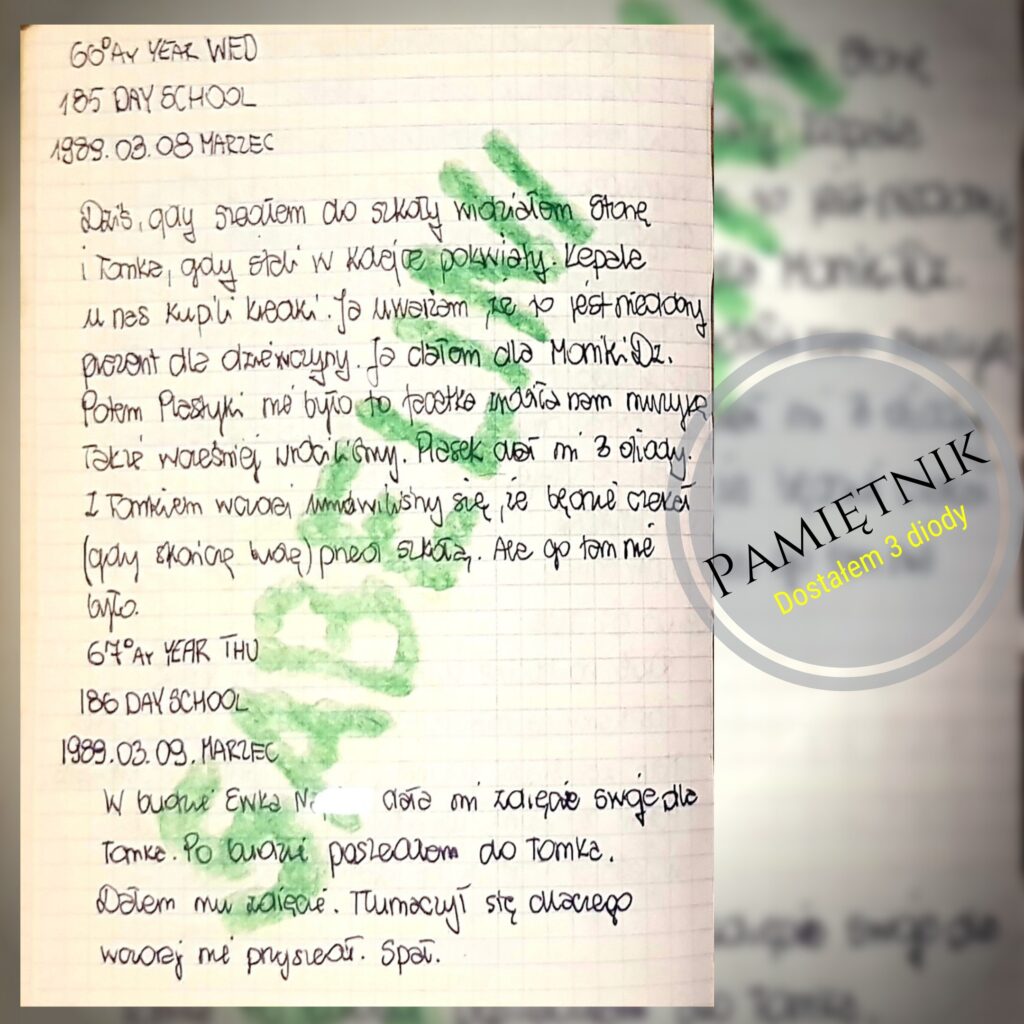 66°Ay YEAR WED
185 DAY SCHOOL
1989.03.08 MARZEC
Dziś, gdy szedłem do szkoły widziałem
i Tomka, gdy stali w kolejce po kwiaty. Łepale
u nas kupili kredki. Ja uważam że to jest niedobry
prezent dla dziewczyny. Ja dałem dla Moniki Dz.
Potem Plastyki nie było to facetka nam muzykę
Także wcześniej wróciliśmy. Piasek dał mi 3 diody.
Z Tomkiem wczoraj umówiliśmy się, że będzie czekał
(gdy skończę budę) przed szkołą. Ale go tam nie
było.
67°Ay YEAR THU
186 DAY SCHOOL
1989.03.09. MARZEC
W budzie Ewka N. dała mi zdięcie swoje dla
Tomka. Po budzie poszedłem do Tomka.
Dałem mu zdięcie. Tłumaczył się dlaczego
wczoraj nie przyszedł. Spał.
SABELUM
PAMIĘTNIK
Dostałem 3 diody